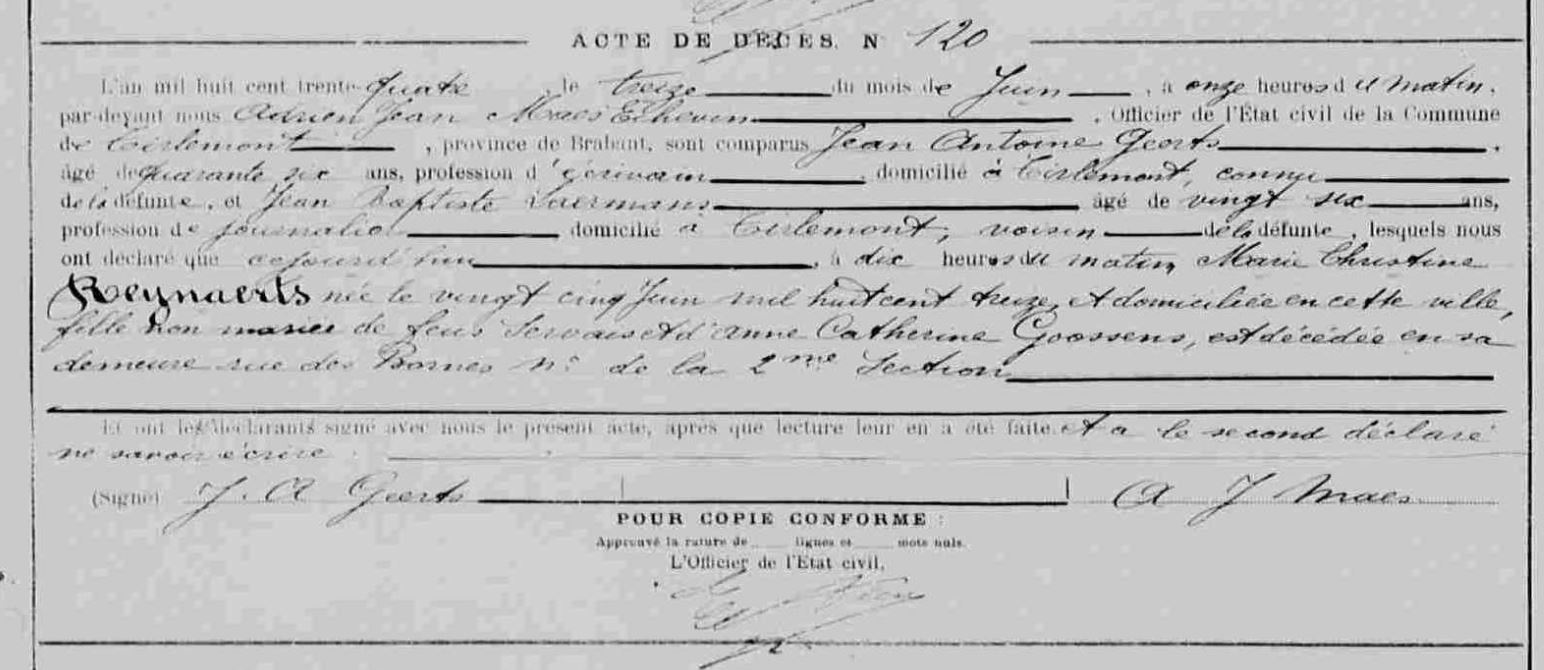 ACTE DE DÉCÈS. N 120
L'an mil huit cent trente-quatre, le treize du mois de Juin, à onze heures du matin,
par-devant nous Adrien Jean Maes Echevin, Officier de l'État civil de la Commune
de Tirlemont, province de Brabant, sont comparus Jean Antoine Geerts,
âgé de quarante six ans, profession d'écrivain, domicilié à Tirlemont, connu
de la défunte, et Jean Baptiste Laermans âgé de vingt six ans,
profession de journalier domicilié à Tirlemont, voisin de la défunte, lesquels nous
ont déclaré que aujourd'hui, à dix heures du matin, Marie Christine
Reynaerts née le vingt cinq Juin mil huit cent treize, et domiciliée en cette ville,
fille non mariée de feus Servais et d'anne Catherine Goossens, est décédée en sa
demeure rue des Bornes n° de la 2me Section
Et ont les déclarants signé avec nous le présent acte, après que lecture leur en a été faite. et a le second déclaré
ne savoir écrire.
(Signé) J. A Geerts A J Maes
POUR COPIE CONFORME :
Approuvé la rature de lignes et mots nuls.
L'Officier de l'État civil,